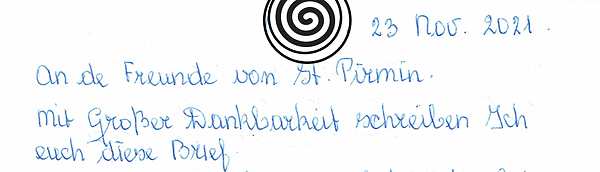 23 Nov. 2021.
An de Freunde von St. Pirmin.
Mit Großer Dankbarkeit schreiben Ich
euch diese Brief.